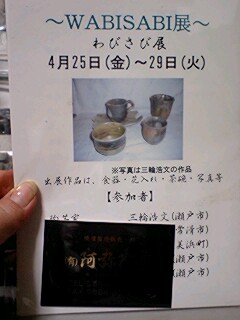 ～WABISABI展～
わびさび展
4月25日(金)～29日(火)
※写真は三輪浩文の作品
出展作品は、食器・花入れ・茶碗・写真等
【参加者】
三輪浩文(瀬戸市)
常滑市)
美浜町)
瀬戸市)
瀬戸市)